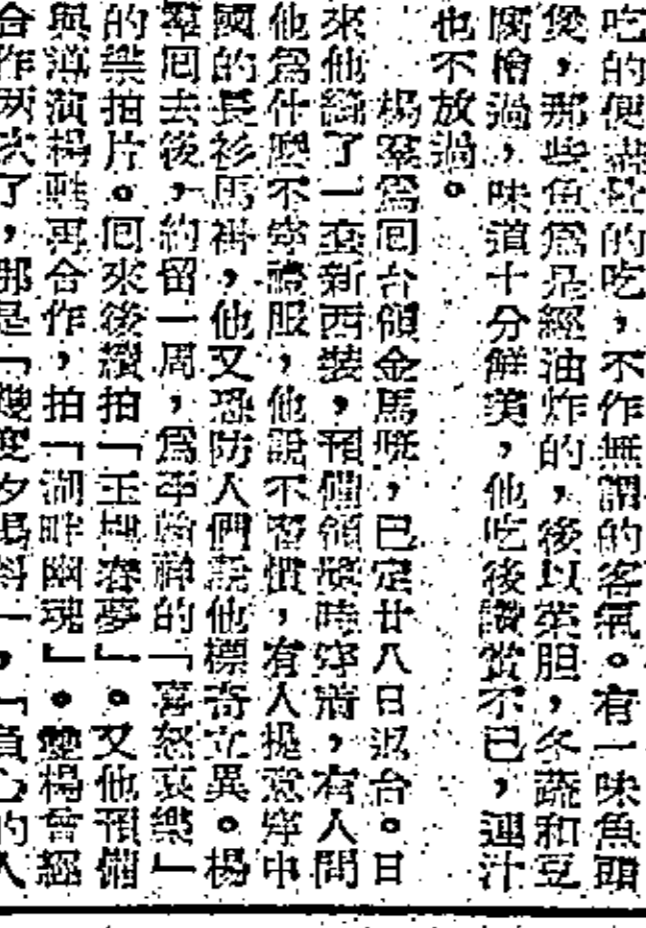 吃的便儘量的吃，不作無謂的客氣。有一味魚頭
煲，那些魚爲是經油炸的，後以菜胆，冬蔬和豆
腐燴過，味道十分鮮美，他吃後讚賞不已，連汁
也不放過。
楊羣爲回台領金馬獎，已定廿八日返台。日
來他縫了一套新西裝，預備領獎時穿着，有人問
他爲什麼不穿禮服，他說不習慣，有人提議穿中
國的長衫馬褂，他又恐防人們說他標奇立異。楊
羣回去後，約留一周，爲李翰祥的「喜怒哀樂」
的樂拍片。回來後續拍「玉樓春夢」。又他預備
與導演楊甦再合作，拍「湖畔幽魂」。楊會經
合作兩次了，那是「幾度夕陽紅」，「負心的人